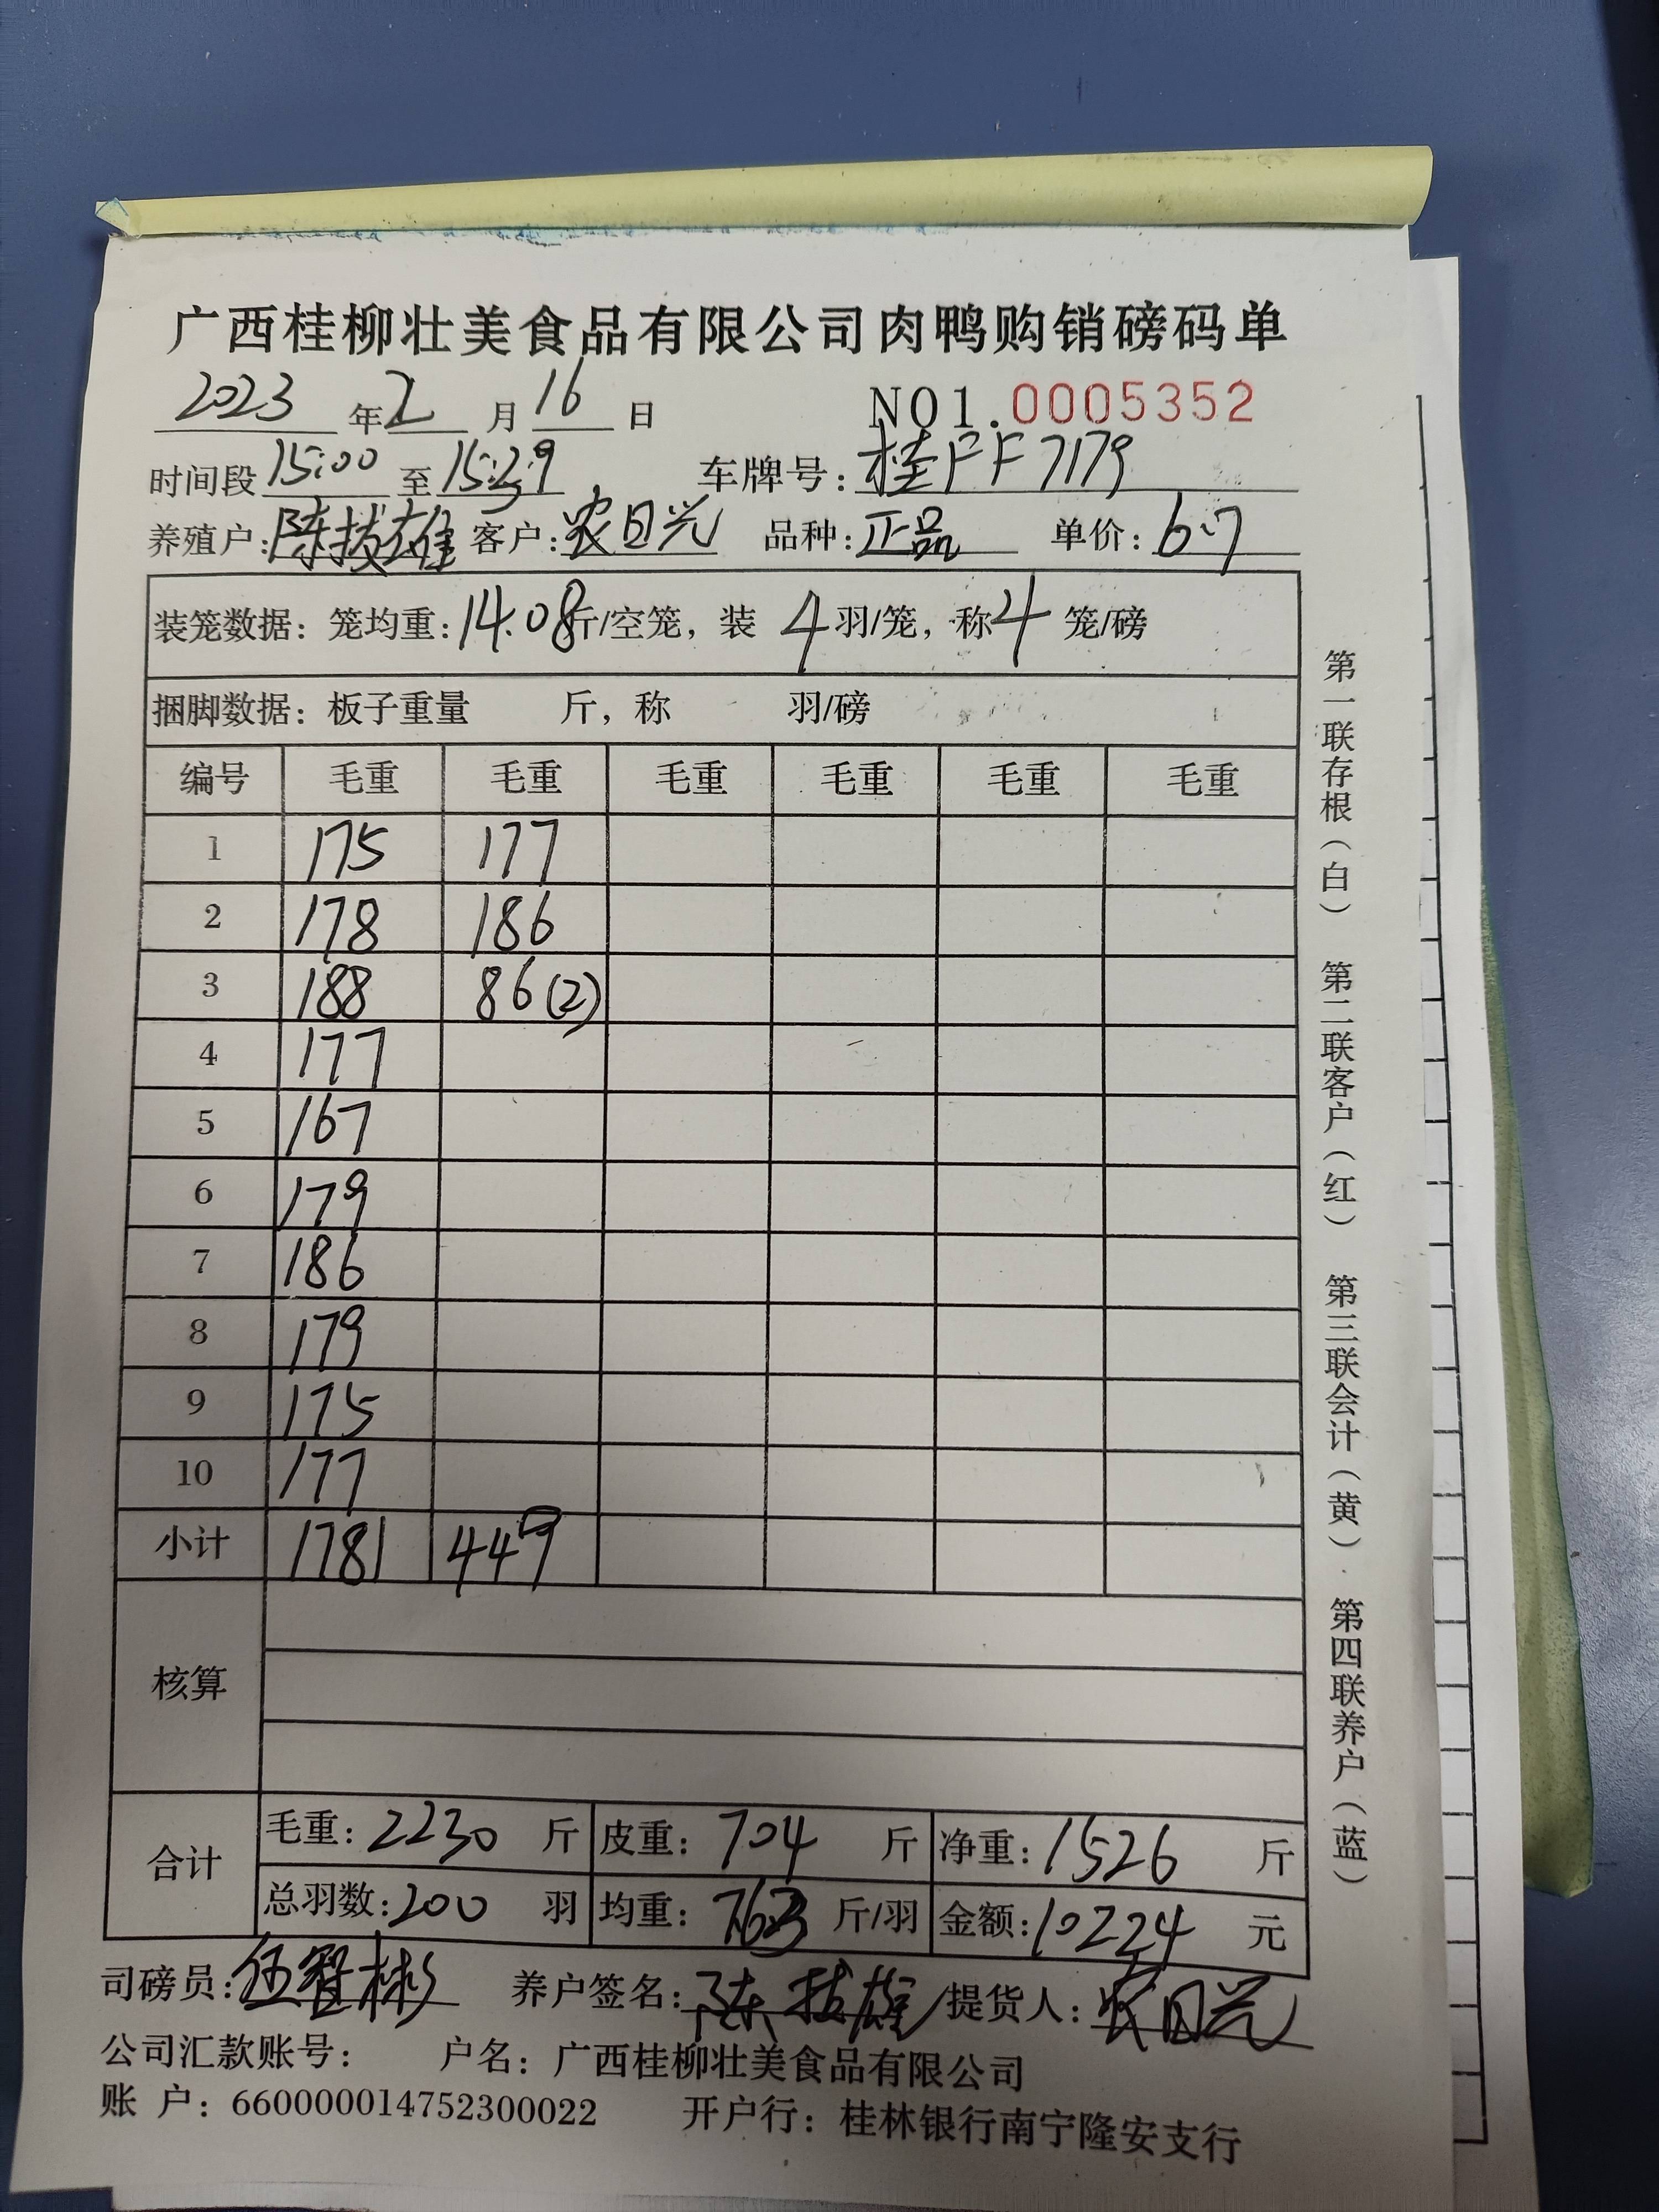 广西桂柳壮美食品有限公司肉鸭购销磅码单
2023 年 2 月 16 日 NO1.0005352
时间段 15:00 至 15:29 车牌号: 桂FF7179
养殖户: 陈技雄 客户: 农日兴 品种: 正品 单价: 6.7
装笼数据: 笼均重: 14.08 斤/空笼, 装 4 羽/笼, 称 4 笼/磅
捆脚数据: 板子重量 斤, 称 羽/磅
编号 毛重 毛重 毛重 毛重 毛重 毛重
1 175 177
2 178 186
3 188 86(2)
4 177
5 167
6 179
7 186
8 179
9 175
10 177
小计 1781 449
核算
合计 毛重: 2230 斤 皮重: 704 斤 净重: 1526 斤
总羽数: 200 羽 均重: 7.63 斤/羽 金额: 10224 元
司磅员: 伍智彬 养户签名: 陈技雄 提货人: 农日兴
公司汇款账号: 户名: 广西桂柳壮美食品有限公司
账 户: 660000014752300022 开户行: 桂林银行南宁隆安支行
第一联存根(白) 第二联客户(红) 第三联会计(黄) 第四联养户(蓝)